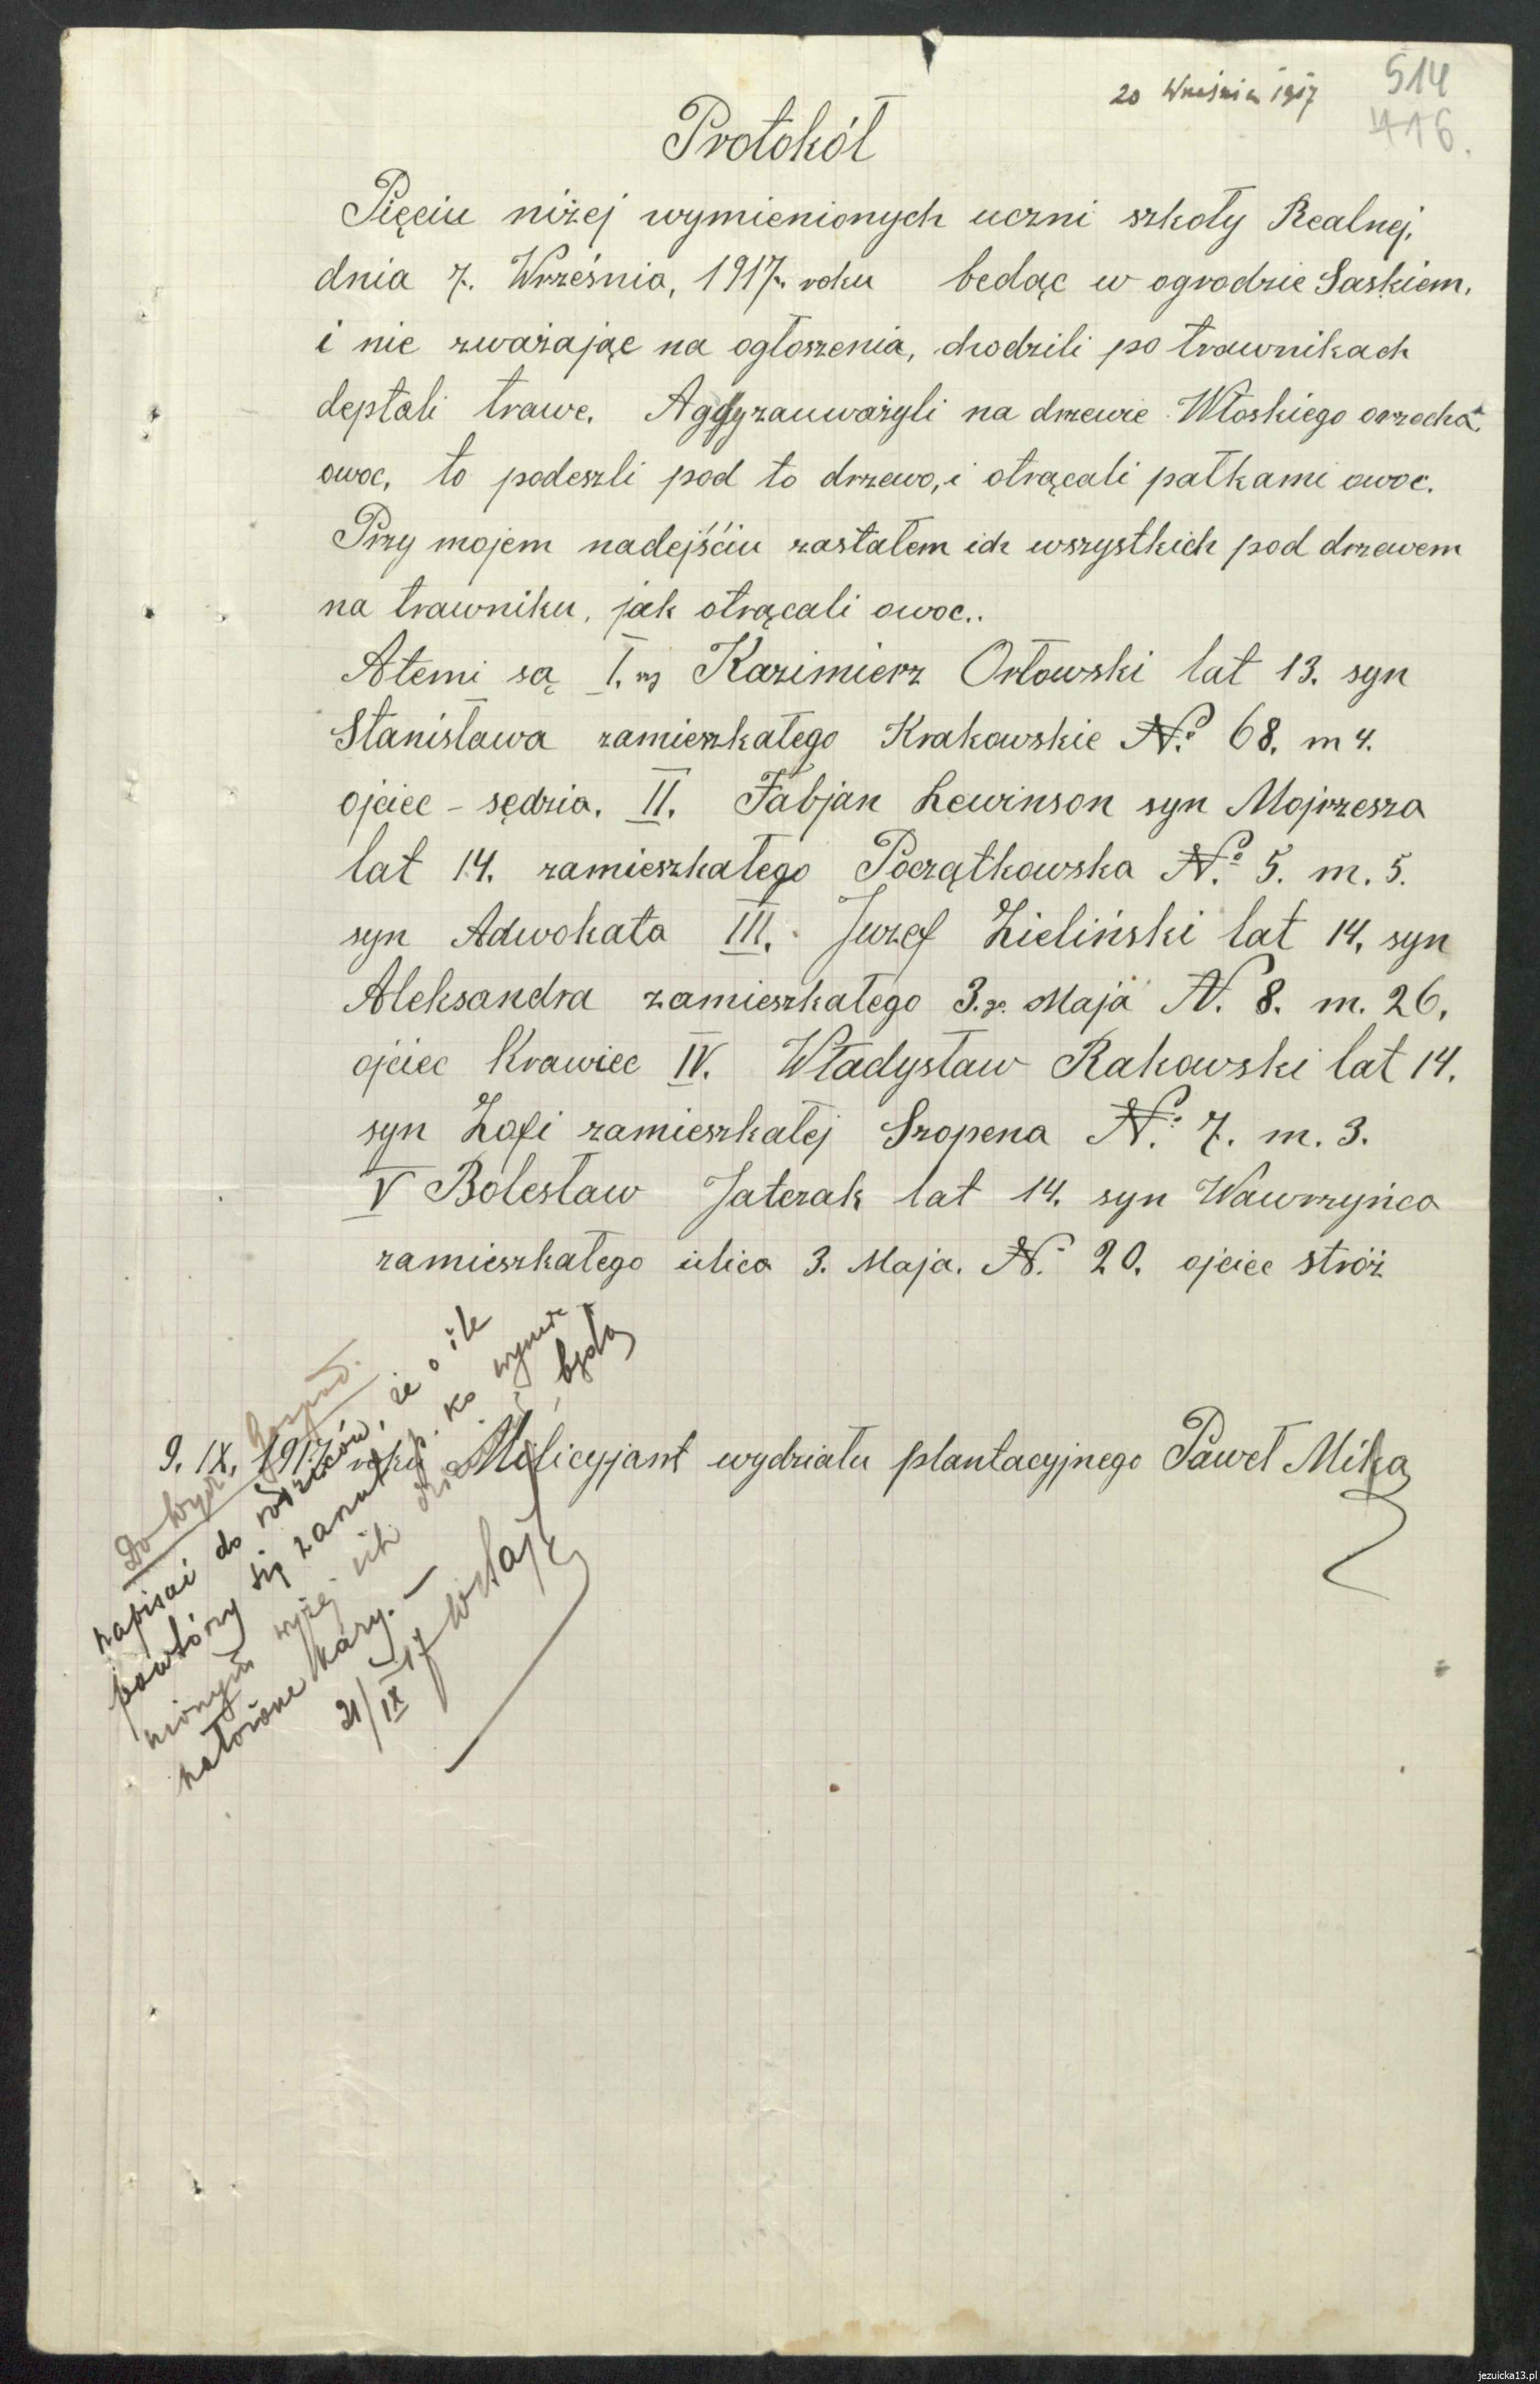 20 Września 1917
514
416.
Protokół
Pięciu niżej wymienionych uczni szkoły Realnej,
dnia 7. Wrześnio, 1917. roku bedąc w ogrodzie Saskiem,
i nie zważając na ogłoszenia, chodzili po trawnikach
deptali trawe. A zauważyli na drzewie Włoskiego orzecha
owoc, to podeszli pod to drzewo, i otrącali pałkami owoc.
Przy mojem nadejściu zastałem ich wszystkich pod drzewem
na trawniku, jak otrącali owoc..
Atemi są I. Kazimierz Orłowski lat 13. syn
Stanisława zamieszkałego Krakowskie No 68. m 4.
ojciec – sędzia. II. Fabjan Lewinson syn Mojrzesza
lat 14. zamieszkałego Początkowska No 5. m. 5.
syn Adwokata III. Juzef Zieliński lat 14, syn
Aleksandra zamieszkałego 3.go Maja N. 8. m. 26,
ojciec Krawiec IV. Władysław Rakowski lat 14.
syn Zofi zamieszkałej Szopena N. 7. m. 3.
V Bolesław Jaterak lat 14. syn Wawrzyńca
zamieszkałego ulica 3. Maja. N. 20. ojciec stróż
9. IX. 1917 roku Milicyjant wydziału plantacyjnego Paweł Mika
Do Wydz. Gospod.
napisać do rodziców, że o ile
powtórzy się zarzut p. ko wymie-
nionym wyżej ich, będą
nałożone kary. –
21/IX 17
jezuicka13.pl